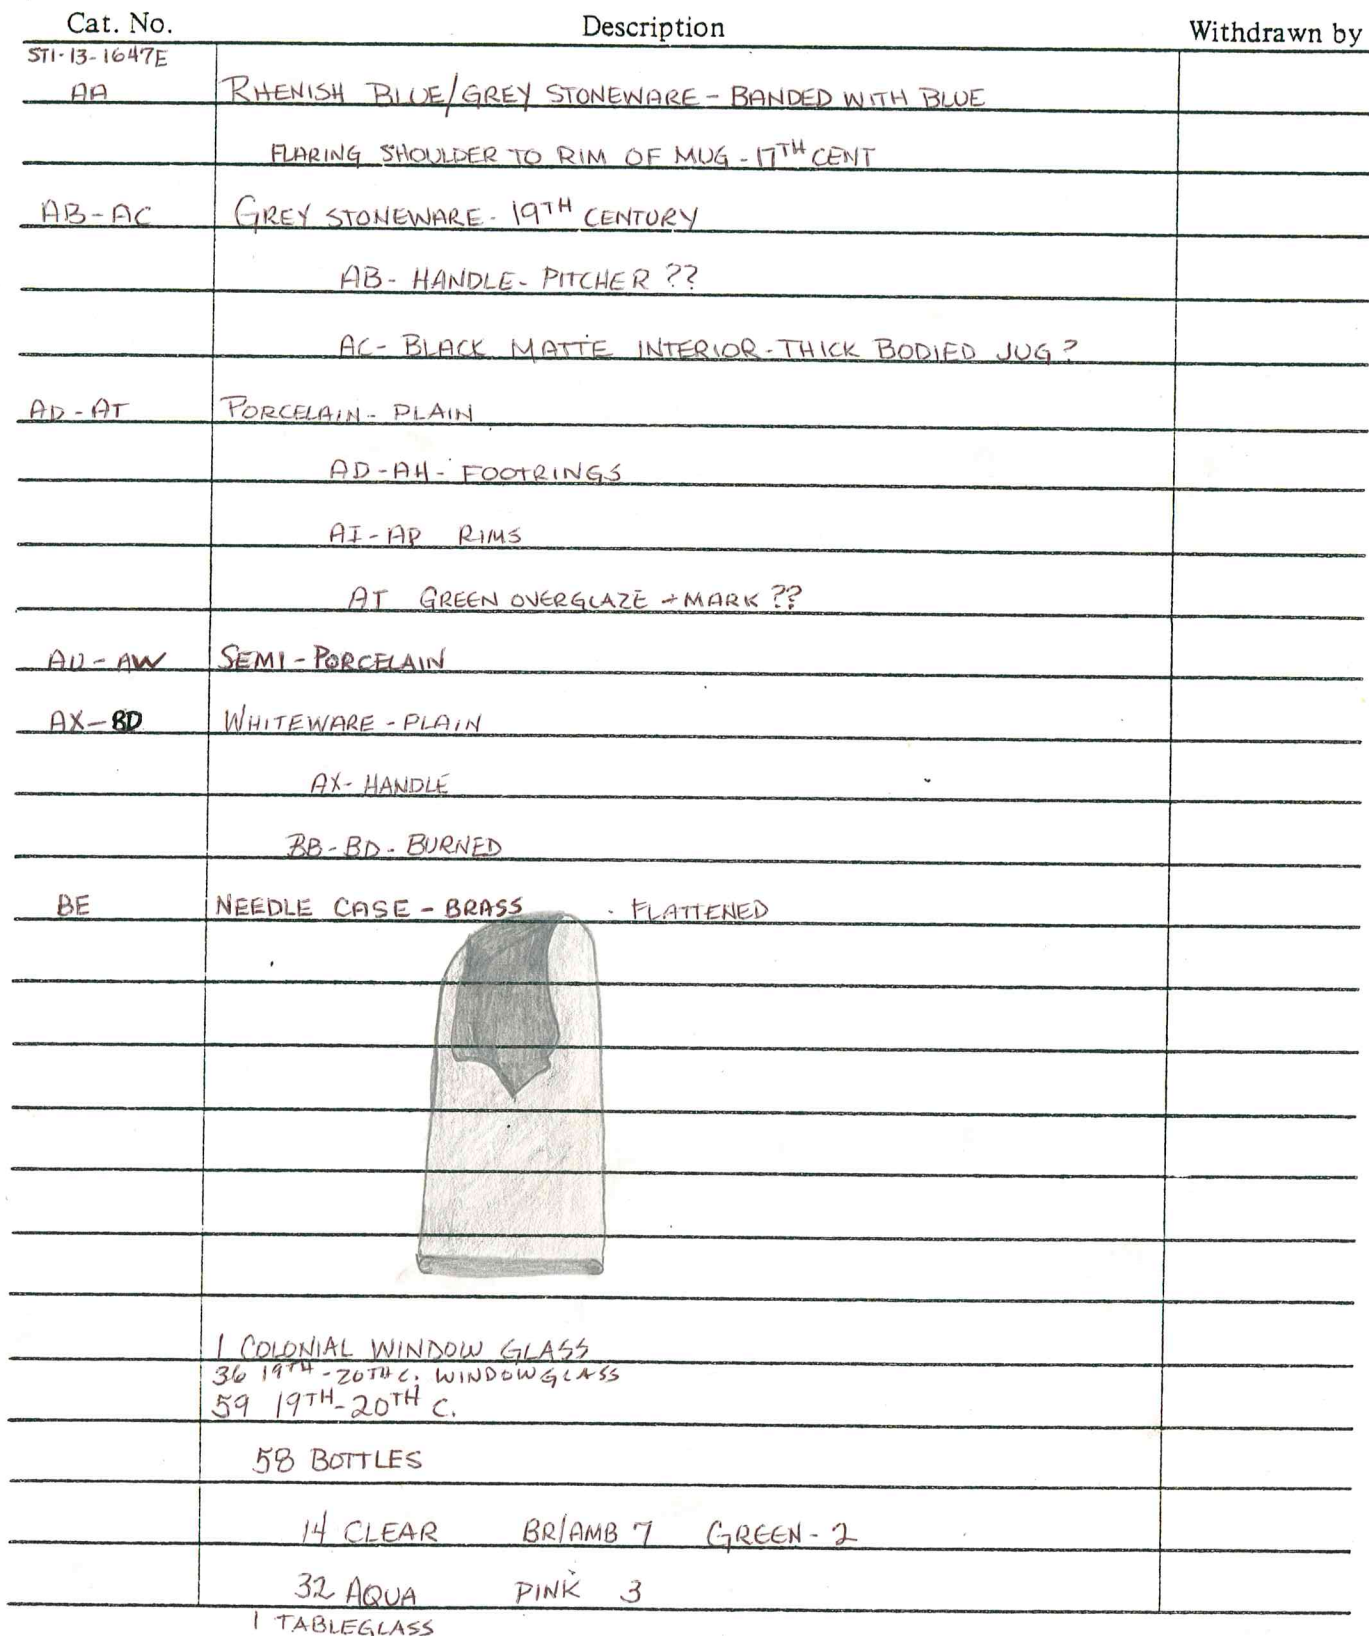 Cat. No. Description Withdrawn by
ST1-13-1647E
AA RHENISH BLUE/GREY STONEWARE - BANDED WITH BLUE
FLARING SHOULDER TO RIM OF MUG - 17TH CENT
AB-AC GREY STONEWARE - 19TH CENTURY
AB- HANDLE- PITCHER ??
AC- BLACK MATTE INTERIOR - THICK BODIED JUG?
AD-AT PORCELAIN - PLAIN
AD-AH- FOOTRINGS
AI-AP RIMS
AT GREEN OVERGLAZE + MARK ??
AU-AW SEMI-PORCELAIN
AX-BD WHITEWARE - PLAIN
AX- HANDLE
BB-BD- BURNED
BE NEEDLE CASE - BRASS - FLATTENED
1 COLONIAL WINDOW GLASS
36 19TH-20TH C. WINDOW GLASS
59 19TH-20TH C.
58 BOTTLES
14 CLEAR BR/AMB 7 GREEN - 2
32 AQUA PINK 3
1 TABLEGLASS